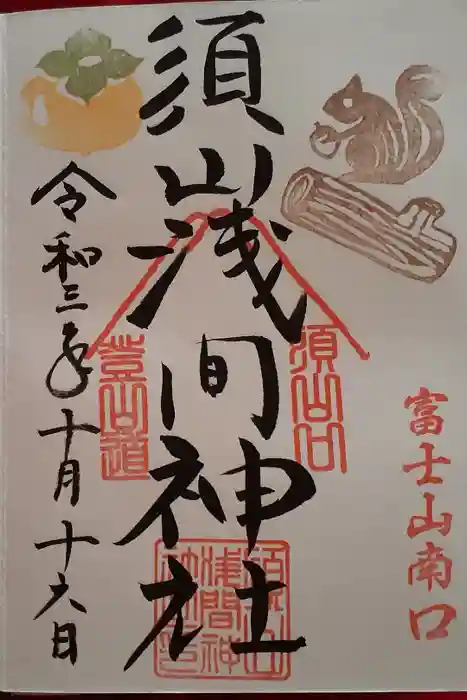 富士山南口
須山浅間神社
須山口
登山道
須山浅間神社
令和三年十月十六日